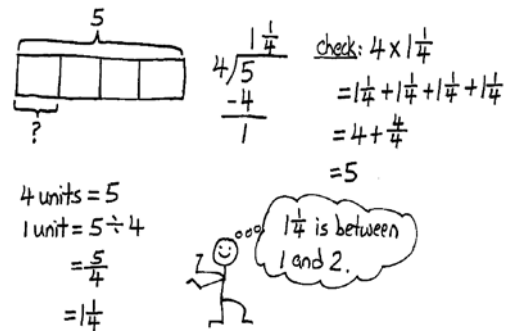 5
?
1 1/4
4)5
-4
1
check: 4 x 1 1/4
= 1 1/4 + 1 1/4 + 1 1/4 + 1 1/4
= 4 + 4/4
= 5
4 units = 5
1 unit = 5 ÷ 4
= 5/4
= 1 1/4
1 1/4 is between
1 and 2.